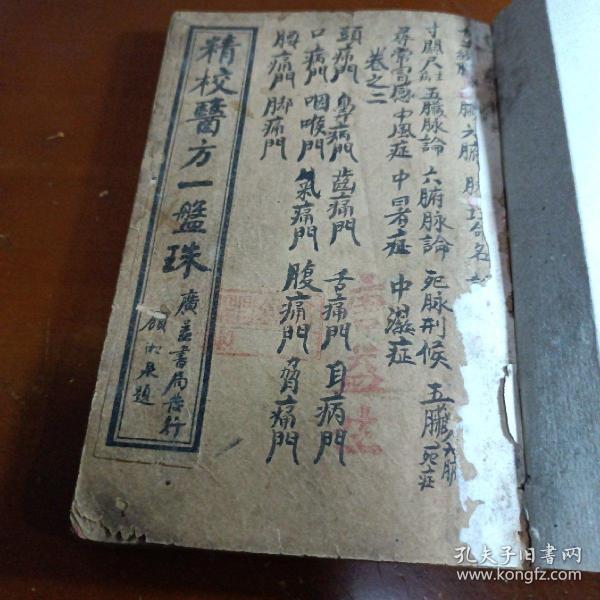 寸關尺註 五臟脉論 六腑脉論 死脉刑候 五臟六腑死症
尋常富感 中風症 中暑症 中濕症
卷之二
頭痛門 鼻病門 齒痛門 舌痛門 耳病門
口病門 咽喉門 氣痛門 腹痛門 脅痛門
腰痛門 脚痛門
精校醫方一盤珠
廣益書局發行
題
孔夫子旧書网
www.kongfz.com